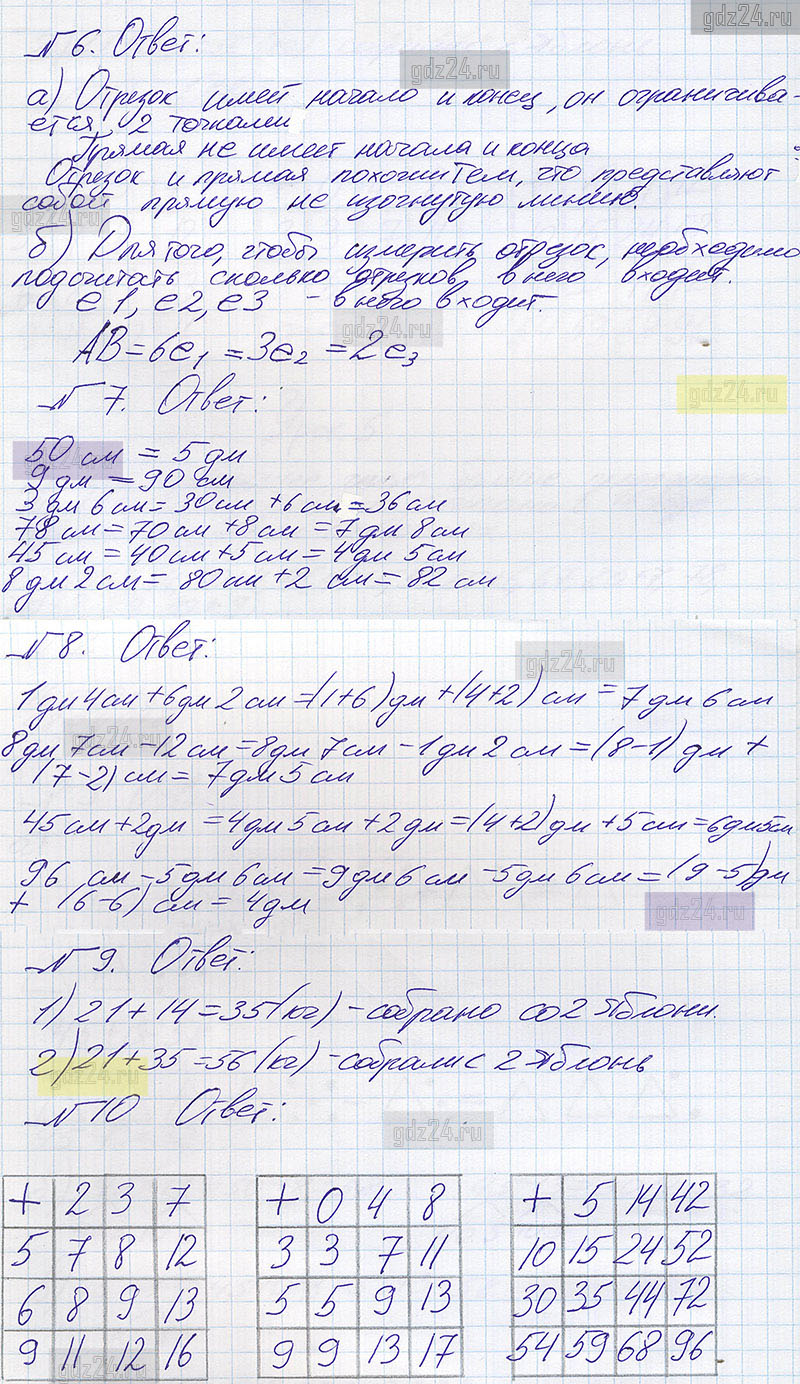 gdz24.ru
№6. Ответ:
gdz24.ru
а) Отрезок имеет начало и конец, он ограничива-
ется, 2 точками
Прямая не имеет начала и конца
Отрезок и прямая похожи тем, что представляют
собой прямую не изогнутую линию.
gdz24.ru
б) Для того, чтобы измерить отрезок, необходимо
подсчитать сколько отрезков в него входит.
е1, е2, е3 - в него входит.
gdz24.ru
АВ = 6е1 = 3е2 = 2е3
№7. Ответ:
gdz24.ru
50 см = 5 дм
gdz24.ru
9 дм = 90 см
3 дм 6 см = 30 см + 6 см = 36 см
78 см = 70 см + 8 см = 7 дм 8 см
45 см = 40 см + 5 см = 4 дм 5 см
8 дм 2 см = 80 см + 2 см = 82 см
№8. Ответ:
gdz24.ru
1 дм 4 см + 6 дм 2 см = (1+6) дм + (4+2) см = 7 дм 6 см
gdz24.ru
8 дм 7 см - 12 см = 8 дм 7 см - 1 дм 2 см = (8-1) дм +
(7-2) см = 7 дм 5 см
45 см + 2 дм = 4 дм 5 см + 2 дм = (4+2) дм + 5 см = 6 дм 5 см
96 см - 5 дм 6 см = 9 дм 6 см - 5 дм 6 см = (9-5) дм
+ (6-6) см = 4 дм
gdz24.ru
№9. Ответ:
1) 21 + 14 = 35 (кг) - собрано со 2 яблони.
2) 21 + 35 = 56 (кг) - собрали с 2 яблонь
gdz24.ru
№10 Ответ:
gdz24.ru
+ 2 3 7
5 7 8 12
6 8 9 13
9 11 12 16
+ 0 4 8
3 3 7 11
5 5 9 13
9 9 13 17
+ 5 14 42
10 15 24 52
30 35 44 72
54 59 68 96
gdz24.ru